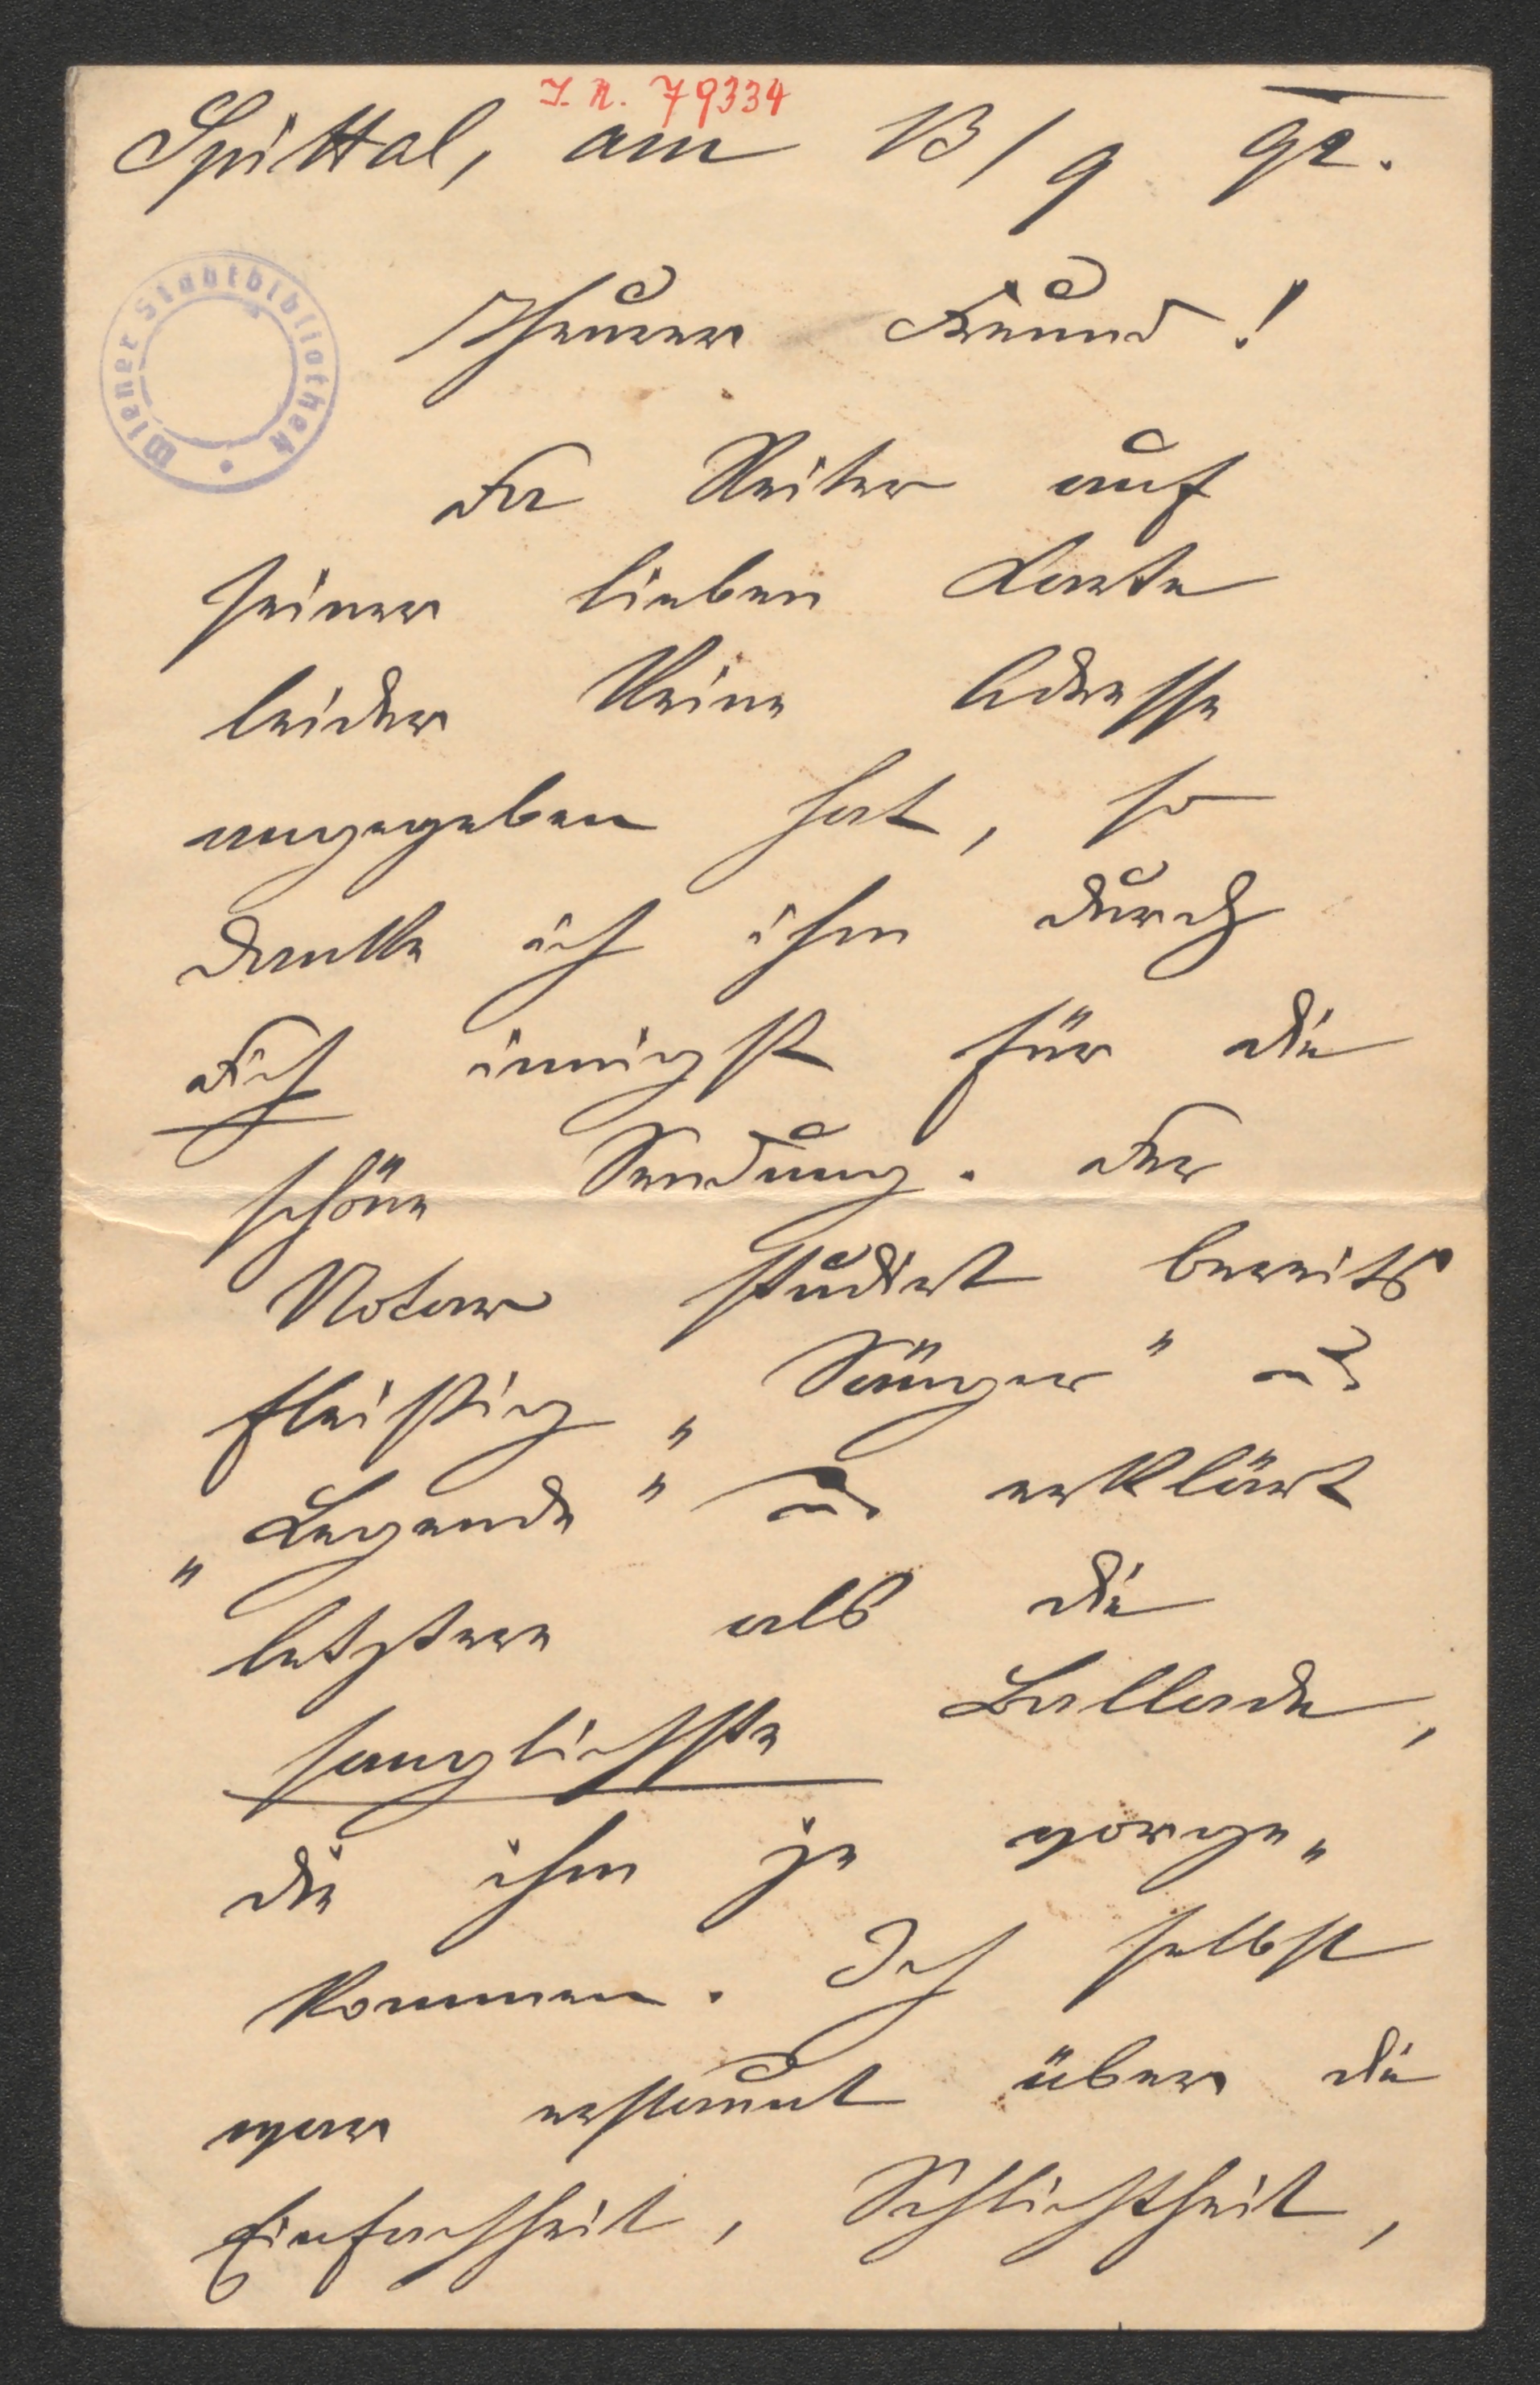 I. N. 79334
Spittal, am 13/9 92.
Wiener Stadtbibliothek
Theurer Freund!
Da Reiter auf
seiner lieben Karte
leider keine Adresse
angegeben hat, so
danke ich ihm durch
Dich innigst für die
schöne Sendung. Der
Notar studirt bereits
fleißig „Sänger" und
„Legende" und erklärt
letztere als die
sanglichste Ballade,
die ihm je vorge„
kommen. Ich selbst
war erstaunt über die
Einfachheit, Schlichtheit,